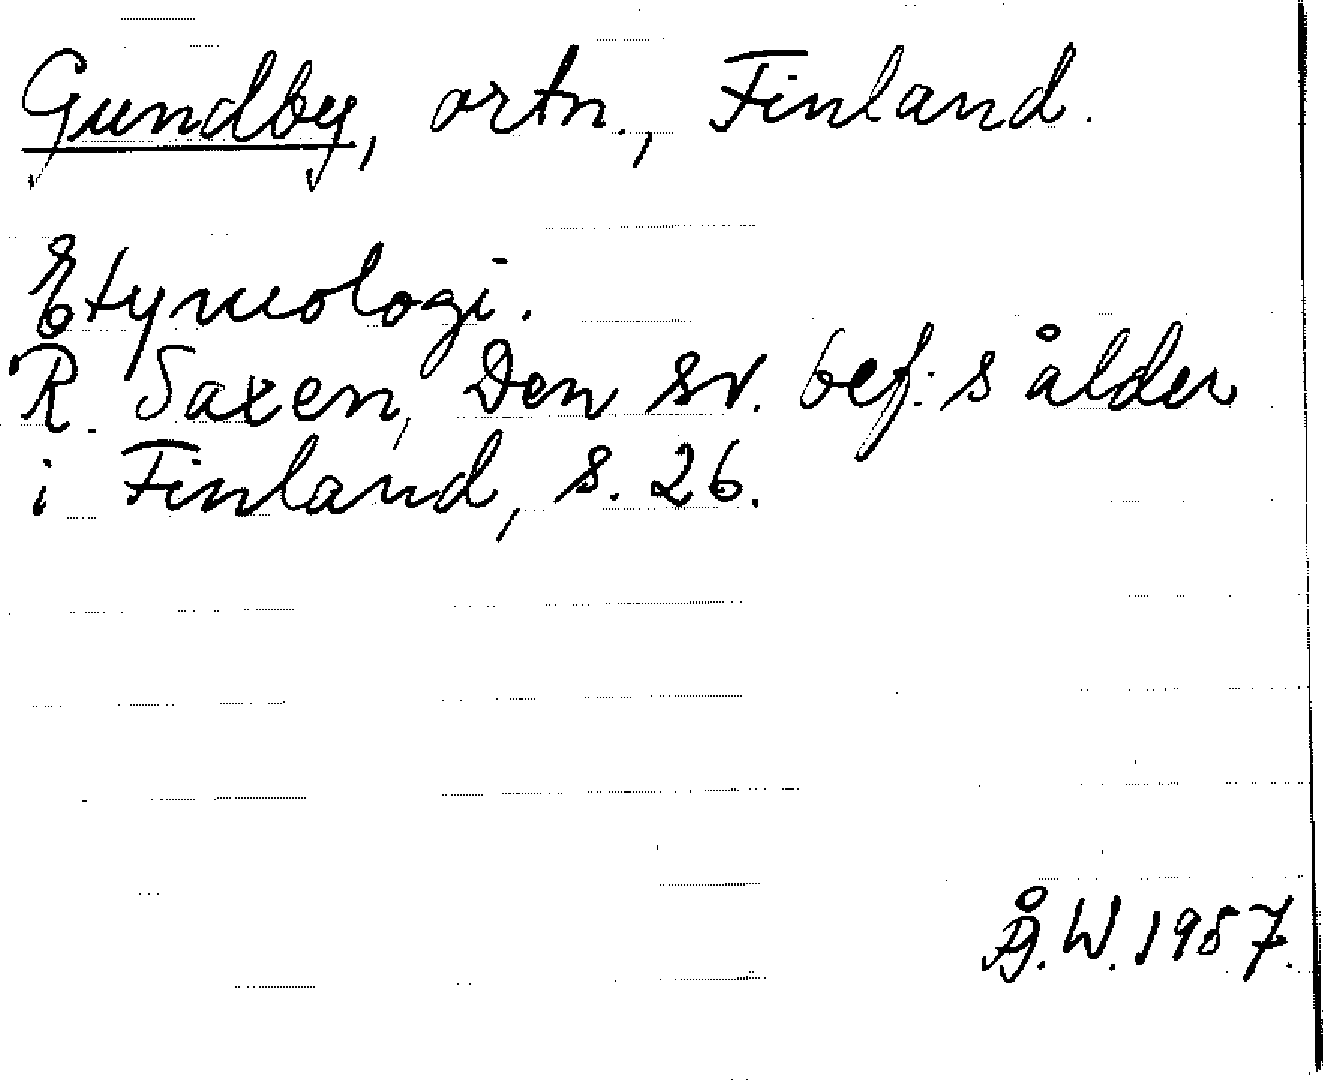 Gundby, ortn., Finland.
Etymologi.
R. Saxen, Den sv. bef:s ålder
i Finland, s. 26.
Å. W. 1957.